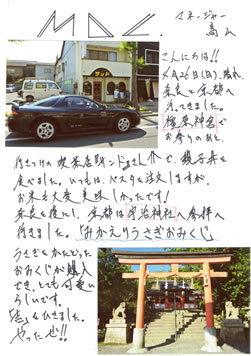 MDC.
マネージャー
高山
こんにちは!!
4月26日(日)、晴れ
奈良と京都へ
行ってきました。
橿原神宮で
お参りの後、
行きつけの喫茶店 で、親子丼を
食べました。いつもは、パスタを注文しますが、
お米も大変美味しかったです!
奈良を後にし、京都は宇治神社へ参拝へ
行きました。「みかえりうさぎおみくじ」
うさぎをかたどった
おみくじが購入
でき、とても可愛い
らしいです。
「吉」をひきました。
やったぜ!!